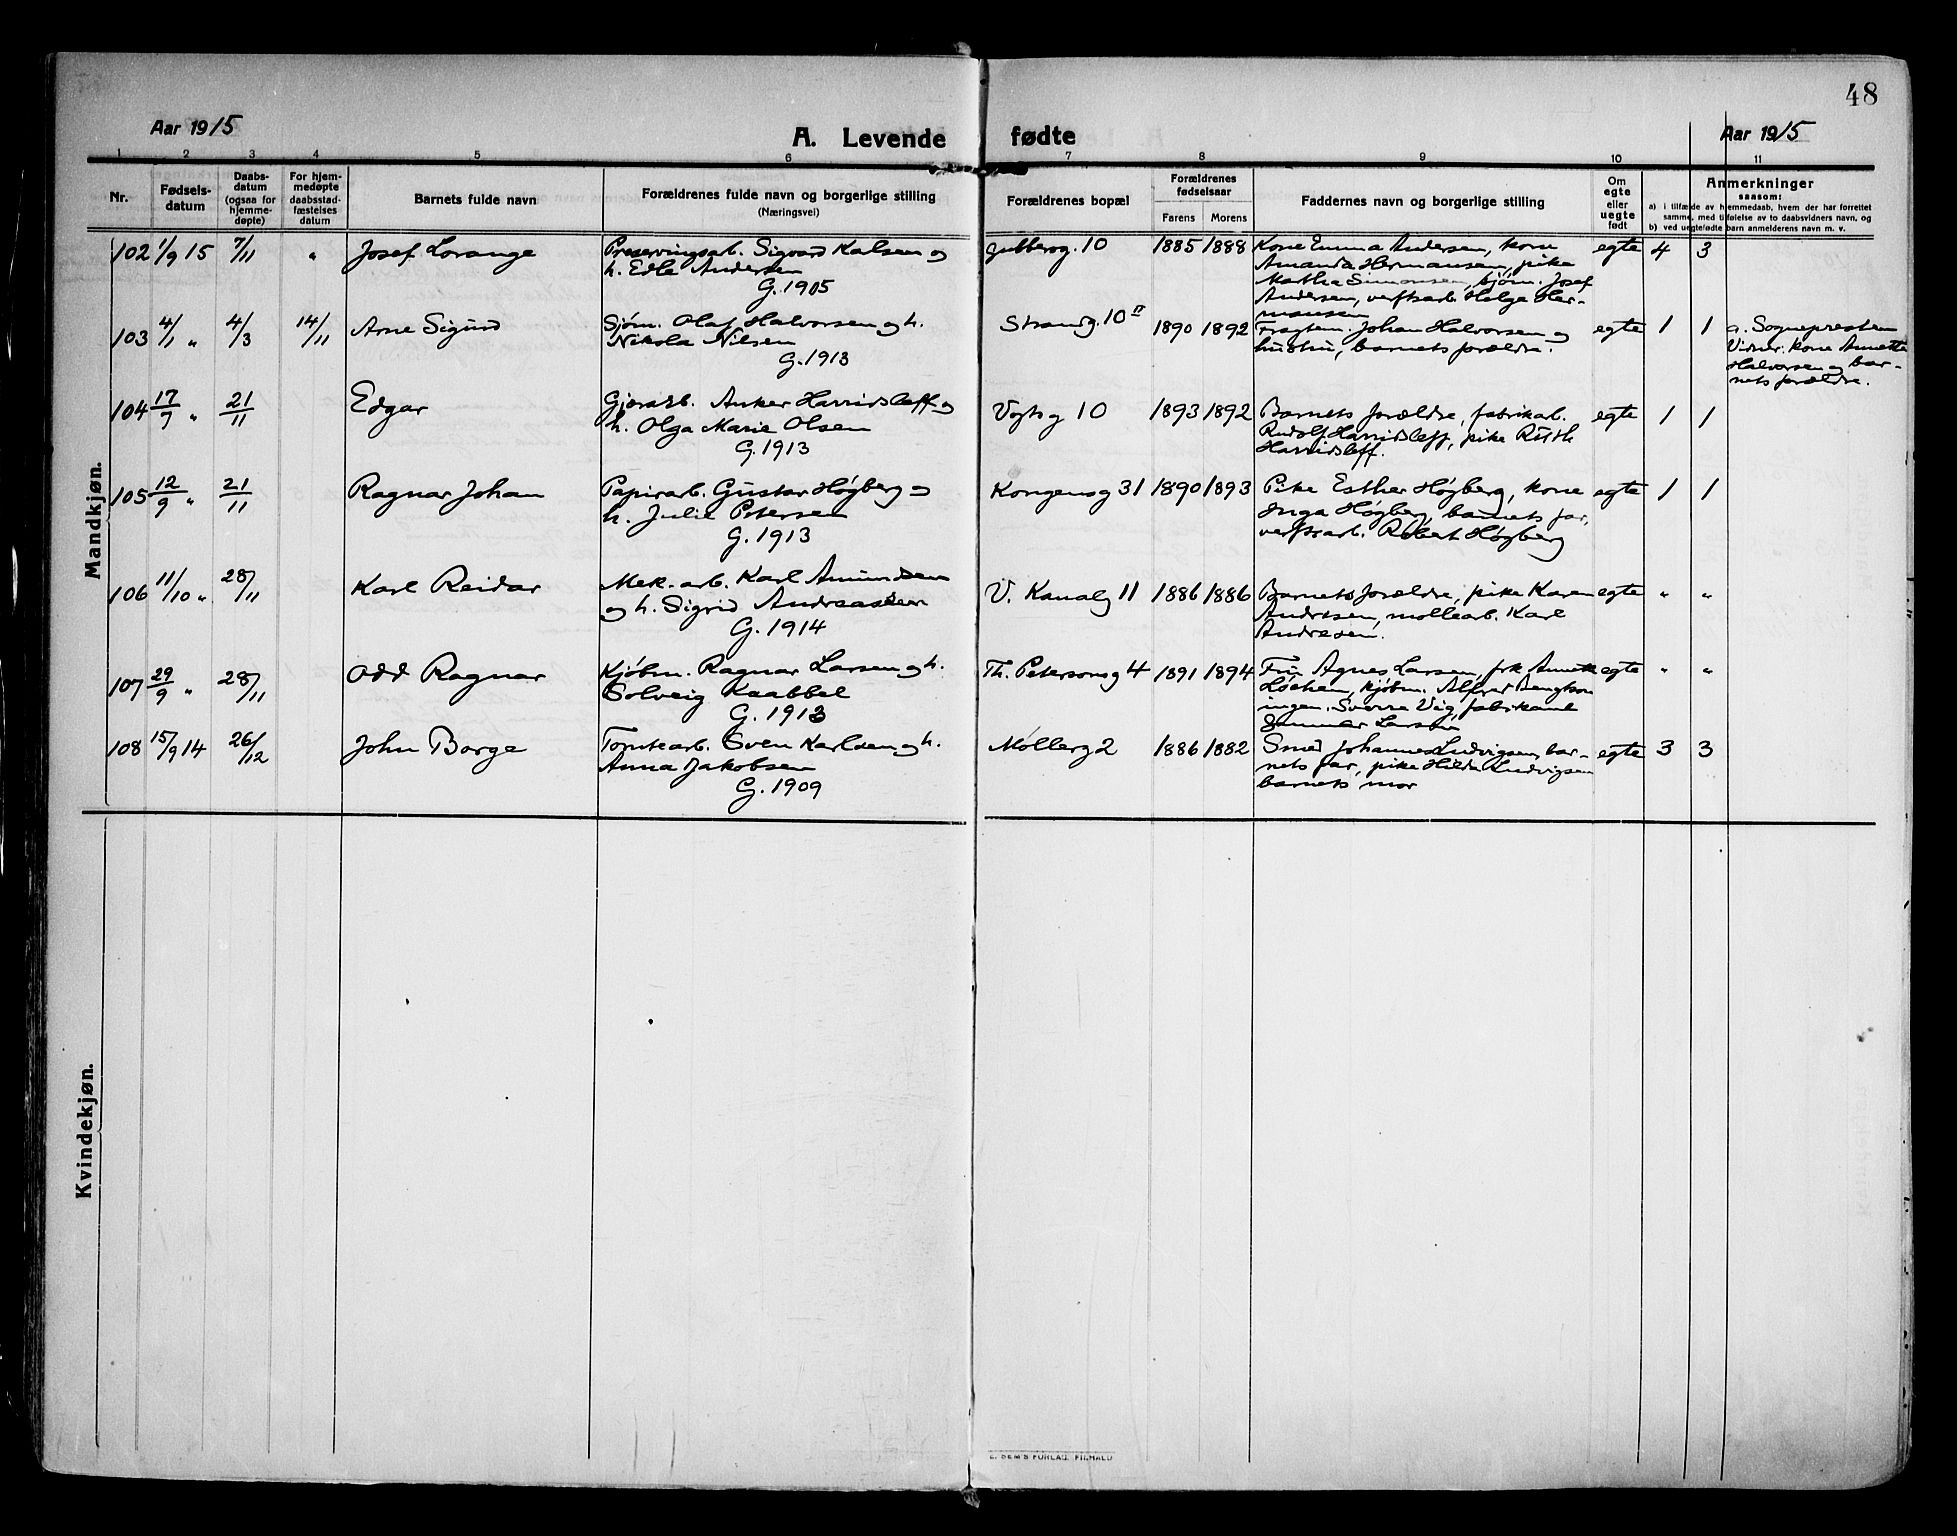 48
Aar 1915
A. Levende fødte
Aar 1915
1 2 3 4 5 6 7 8 9 10 11
Nr.
Fødsels-
datum
Daabs-
datum
(ogsaa for
hjemme-
døpte)
For hjem-
medøpte
daabsstad-
fæstelses
datum
Barnets fulde navn
Forældrenes fulde navn og borgerlige stilling
(Næringsvei)
Forældrenes bopæl
Forældrenes
fødselsaar
Farens Morens
Faddernes navn og borgerlige stilling
Om
egte
eller
uegte
født
Anmerkninger
saasom:
a) i tilfælde av hjemmedaab, hvem der har forrettet
samme, med tilføielse av to daabsvidners navn, og
b) ved uegtefødte barn anmelderens navn m. v.
Mandkjøn.
102 1/9 15 7/11 " Josef Lorange
Preservingsarb. Sigvard Kalsen og
h. Edle Andersen
G. 1905
10 1885 1888
Kone Emma Andersen, kone
Amanda Hermansen, pike
Martha Simonsen, bjøm. Josef
Andersen, verftsarb. Helge Her-
mansen
egte 4 3
103 4/1 " 4/3 14/11 Arne Sigurd
Sjøm. Olaf Halvorsen og h.
Nikola Nilsen
G. 1913
Strandg. 10 II 1890 1892
Fragtem. Johan Halvorsen og
hustru, barnets forældre.
egte 1 1
a. Sognepresten
Vidner: kone Annette
Halvorsen og bar-
nets forældre.
104 17/7 " 21/11 Edgar
Anker Harridsleff og
h. Olga Marie Olsen
G. 1913
Vogtsg 10 1893 1892
Barnets forældre, fabrikarb.
Rudolf Harridsleff, pike Ruth
Harridsleff.
egte 1 1
105 12/9 " 21/11 Ragnar Johan
Papirarb. Gustav Høgberg og
h. Julie Petersen
G. 1913
Kongensg 31 1890 1893
Pike Esther Høgberg, kone
Inga Høgberg, barnets far,
verftsarb. Robert Høgberg
egte 1 1
106 11/10 " 28/11 Karl Reidar
Mek. arb. Karl Amundsen
og h. Sigrid Andreassen
G. 1914
V. Kanalg 11 1886 1886
Barnets forældre, pike Karen
Andresen, møllearb. Karl
Andresen.
egte " "
107 29/9 " 28/11 Odd Ragnar
Kjøbm. Ragnar Larsen og h.
Solveig Kaabbel
G. 1913
Th. Petersonsg 4 1891 1894
Fru Agnes Larsen, frk Annette
kjøbm. Alfred
ingen. Sverre Vig, fabrikant
Larsen
egte " "
108 15/9 14 26/12 John Borge
Tomtearb. Sven Karlsen og h.
Anna Jakobsen
G. 1909
Møllerg 2 1886 1882
Smed Johannes Ludvigsen, bar-
nets far, pike Hilda Ludvigsen
barnets mor
egte 3 3
Kvindekjøn.
E. SEM'S FORLAG, FR.HALD